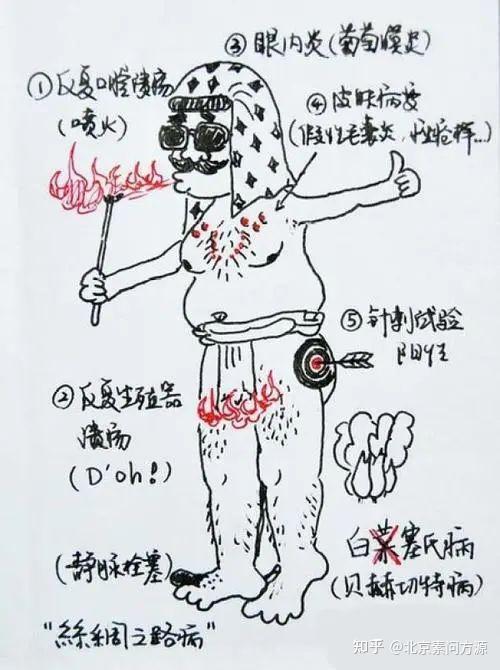 ③ 眼内炎(葡萄膜炎)
① 反复口腔溃疡
(喷火)
④ 皮肤病变
(假性毛囊炎,性痤疮样...)
⑤ 针刺试验
阳性
② 反复生殖器
溃疡
(D'oh!)
白菜塞氏病
(贝赫切特病)
(静脉栓塞)
"絲綢之路病"
知乎 @北京素问方源